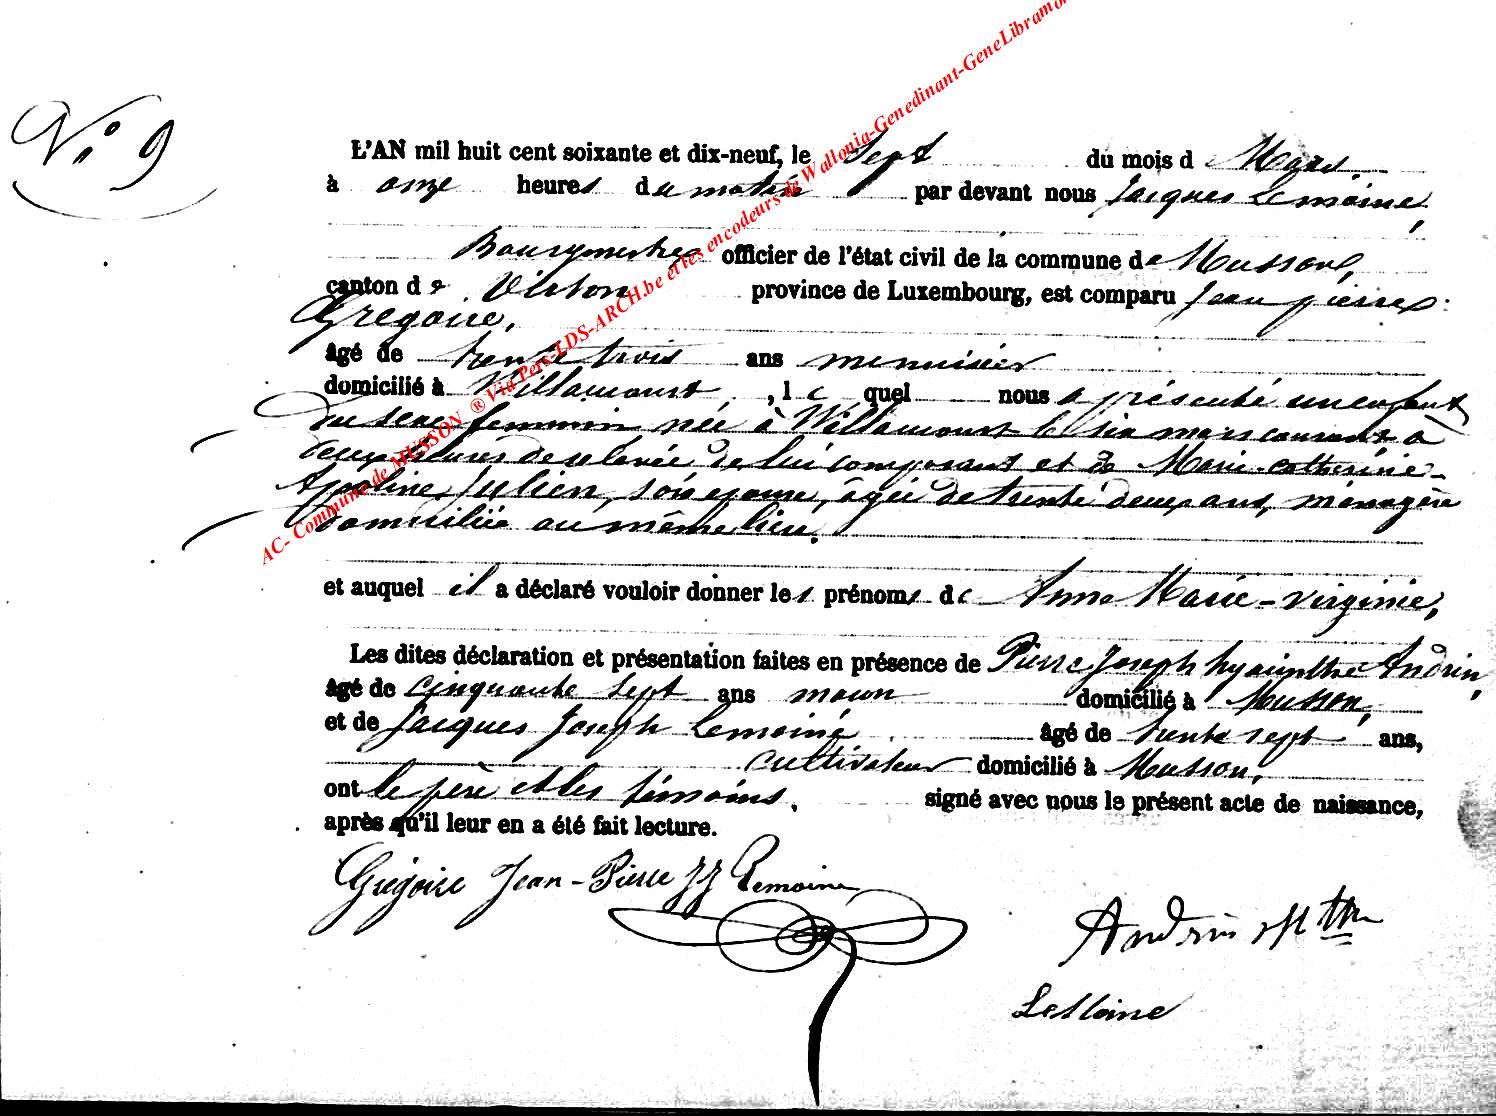 N° 9
L'AN mil huit cent soixante et dix-neuf, le Sept du mois d Mars
à onze heures du matin par devant nous Jacques Lemoine,
Bourgmestre officier de l'état civil de la commune de Musson,
canton de Virton province de Luxembourg, est comparu Jean pierre
Grégoire,
âgé de trente trois ans menuisier
domicilié à Willancourt, le quel nous a présenté un enfant
du sexe féminin née à Willancourt le six mars courant à
deux heures de relevée de lui comparant et de Marie-catherine-
Apoline Julien, son épouse, âgée de trente deux ans, ménagère
domiciliée au même lieu.
et auquel il a déclaré vouloir donner les prénoms de Anne Marie-virginie,
Les dites déclaration et présentation faites en présence de Pierre Joseph hyacinthe Andrin,
âgé de cinquante sept ans domicilié à Musson,
et de Jacques Joseph Lemoine âgé de trente sept ans,
cultivateur domicilié à Musson,
ont le père et les témoins, signé avec nous le présent acte de naissance,
après qu'il leur en a été fait lecture.
Grégoire Jean-Pierre JJ Lemoine
Andrin
Lemoine
AC- Commune de MUSSON ® Via Pers-LDS-ARCH.be et les encodeurs de Wallonia-Genedinant-GeneLibramo